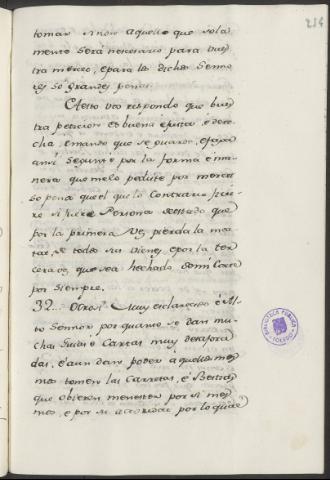 214
tomar sino aquello que sola
mente será necesario para vues
tra merced, e para los dichos Seño
res so grandes penas.
A esto vos respondo que vues
tra peticion es buena e justa e dere
cha, e mando que se guarde, e faga
ansi segun e por la forma e ma
nera que me lo pedistes por merced
so pena que el que lo contrario ficie
re si fuere Persona de estado que
por la primera vez pierda la mi
tad, de todos sus vienes, e por la ter
cera vez que sea hechado de mi Corte
por siempre.
32... Otrosi Muy esclarecido é Al
to Señor, por quanto se dan mu
chas Cartas muy desafora
das, é aun dan poder a aquellos mes
mos tomen las Carretas, é Bestias
que obieren menester por si mes
mos, e por su autoridad por lo qual
BIBLIOTECA PUBLICA
TOLEDO